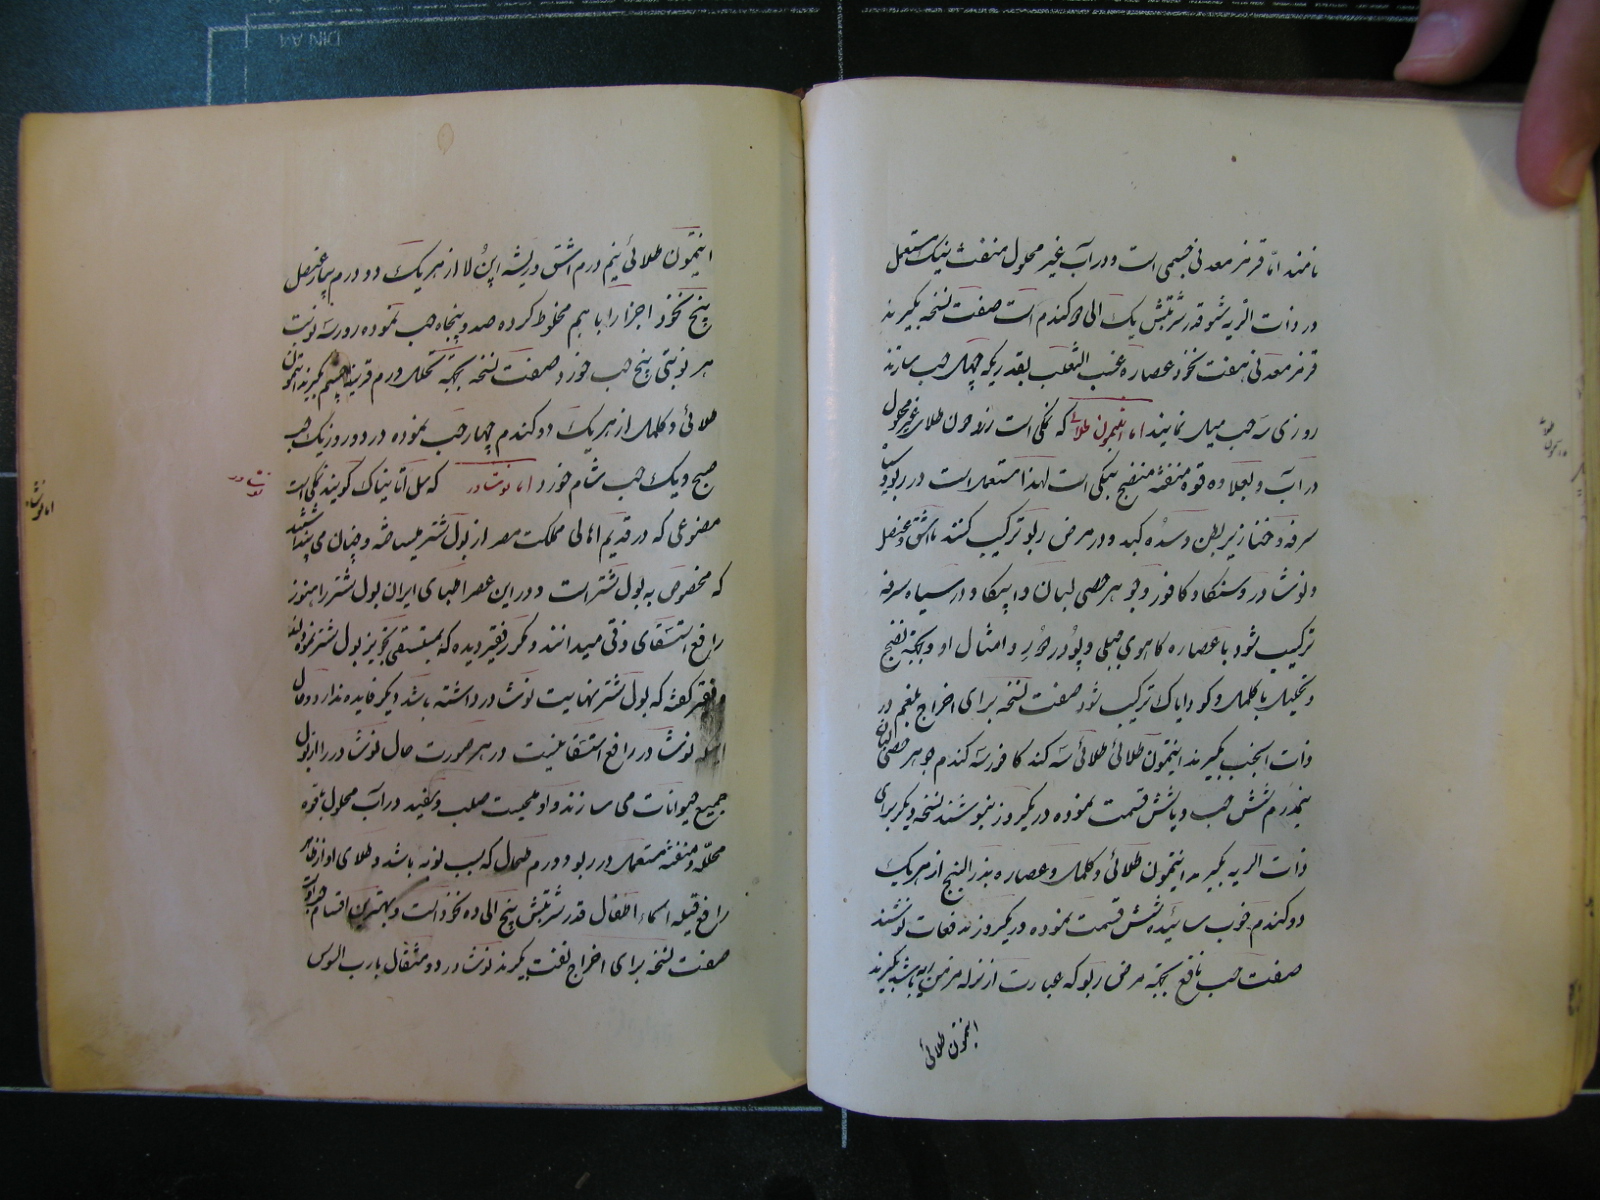 نامند اما قرمز معدنی جسمی است و در آب غیر محلول منفث نیک مستعمل
در ذات الریه شو قدر شربتش یک الی کندم است صفت نسخه بگیرند
قرمز معدنی هفت نخود عصاره عنب الثعلب بقدریکه چهل حب سازند
روزی سه حب میل نمایند اما انتیمون طلائی که نمکی است زرد چون طلای غیر محلول
در آب و بعلاوه قوه منفثه منضج نیکی است لهذا مستعمل است در ربو و سیاه
سرفه و خنازیر بطن و سده کبد و در مرض ربو ترکیب کنند با اشق و عنصل
و نوشادر و کافور و جوهر حصی لبان و اپیکا و در سیاه سرفه
ترکیب شود با عصاره کاهوی جبلی و پودر دور و امثال او و بجهة نضج
و تحلیل با کلمل و کودایاک ترکیب شود صفت نسخه برای اخراج بلغم در
ذات الجنب بگیرند انتیمون طلائی طلائی سه کندم کافور سه کندم جوهر حصی لبان
نیمدرم شش حب و یا شش قسمت نموده در یکروز بنوشند نسخه دیگر برای
ذات الریه بگیرند انتیمون طلائی و کلمل و عصاره بذر البنج از هر یک
دو کندم خوب سائیده شش قسمت نموده در یکروز بدفعات نوشند
صفت حب نافع بجهة مرض ربو که عبارت از نزله مزمن ریه باشد بگیرند
انتیمون طلائی
انتیمون طلائی نیم درم اشق و ریشه اپن لا از هر یک دو درم پیاز عنصل
پنج نخود اجزا را با هم مخلوط کرده صد و پنجاه حب نموده روز سه نوبت
هر نوبتی پنج حب خورد صفت نسخه بجهة تحلیل ورم بگیرند انتیمون
طلائی و کلمل از هر یک دو کندم چهار حب نموده در دو روز یک حب
صبح و یک حب شام خورد اما نوشادر که سل آمنیاک گویند نمکی است
نوشادر
اما نوشادر
مصنوعی که در قدیم اهالی مملکت مصر از بول شتر میساختند و چنان می پنداشتند
که مخصوص به بول شتر است و در این عصر اطبای ایران بول شتر را هنوز
رافع استسقای زقی میدانند و مکرر فقیر دیده که بمستسقی تجویز بول شتر نموده اند
و فقیر گفته که بول شتر نهایت نوشادر داشته باشد دیگر فایده ندارد و حال
نوشادر رافع استسقا نیست در هر صورت حال نوشادر را از بول
جمیع حیوانات می سازند و او ملحیست صلب و سفید در آب محلول با قوه
محلله و منفثه مستعمل در ربو و ورم طحال که بسبب نوبه باشد و طلای او از ظاهر
رافع قیله اسماء اطفال قدر شربتش پنج الی ده نخود است و بهترین اقسام
صفت نسخه برای اخراج نفث بگیرند نوشادر دو مثقال با رب السوس